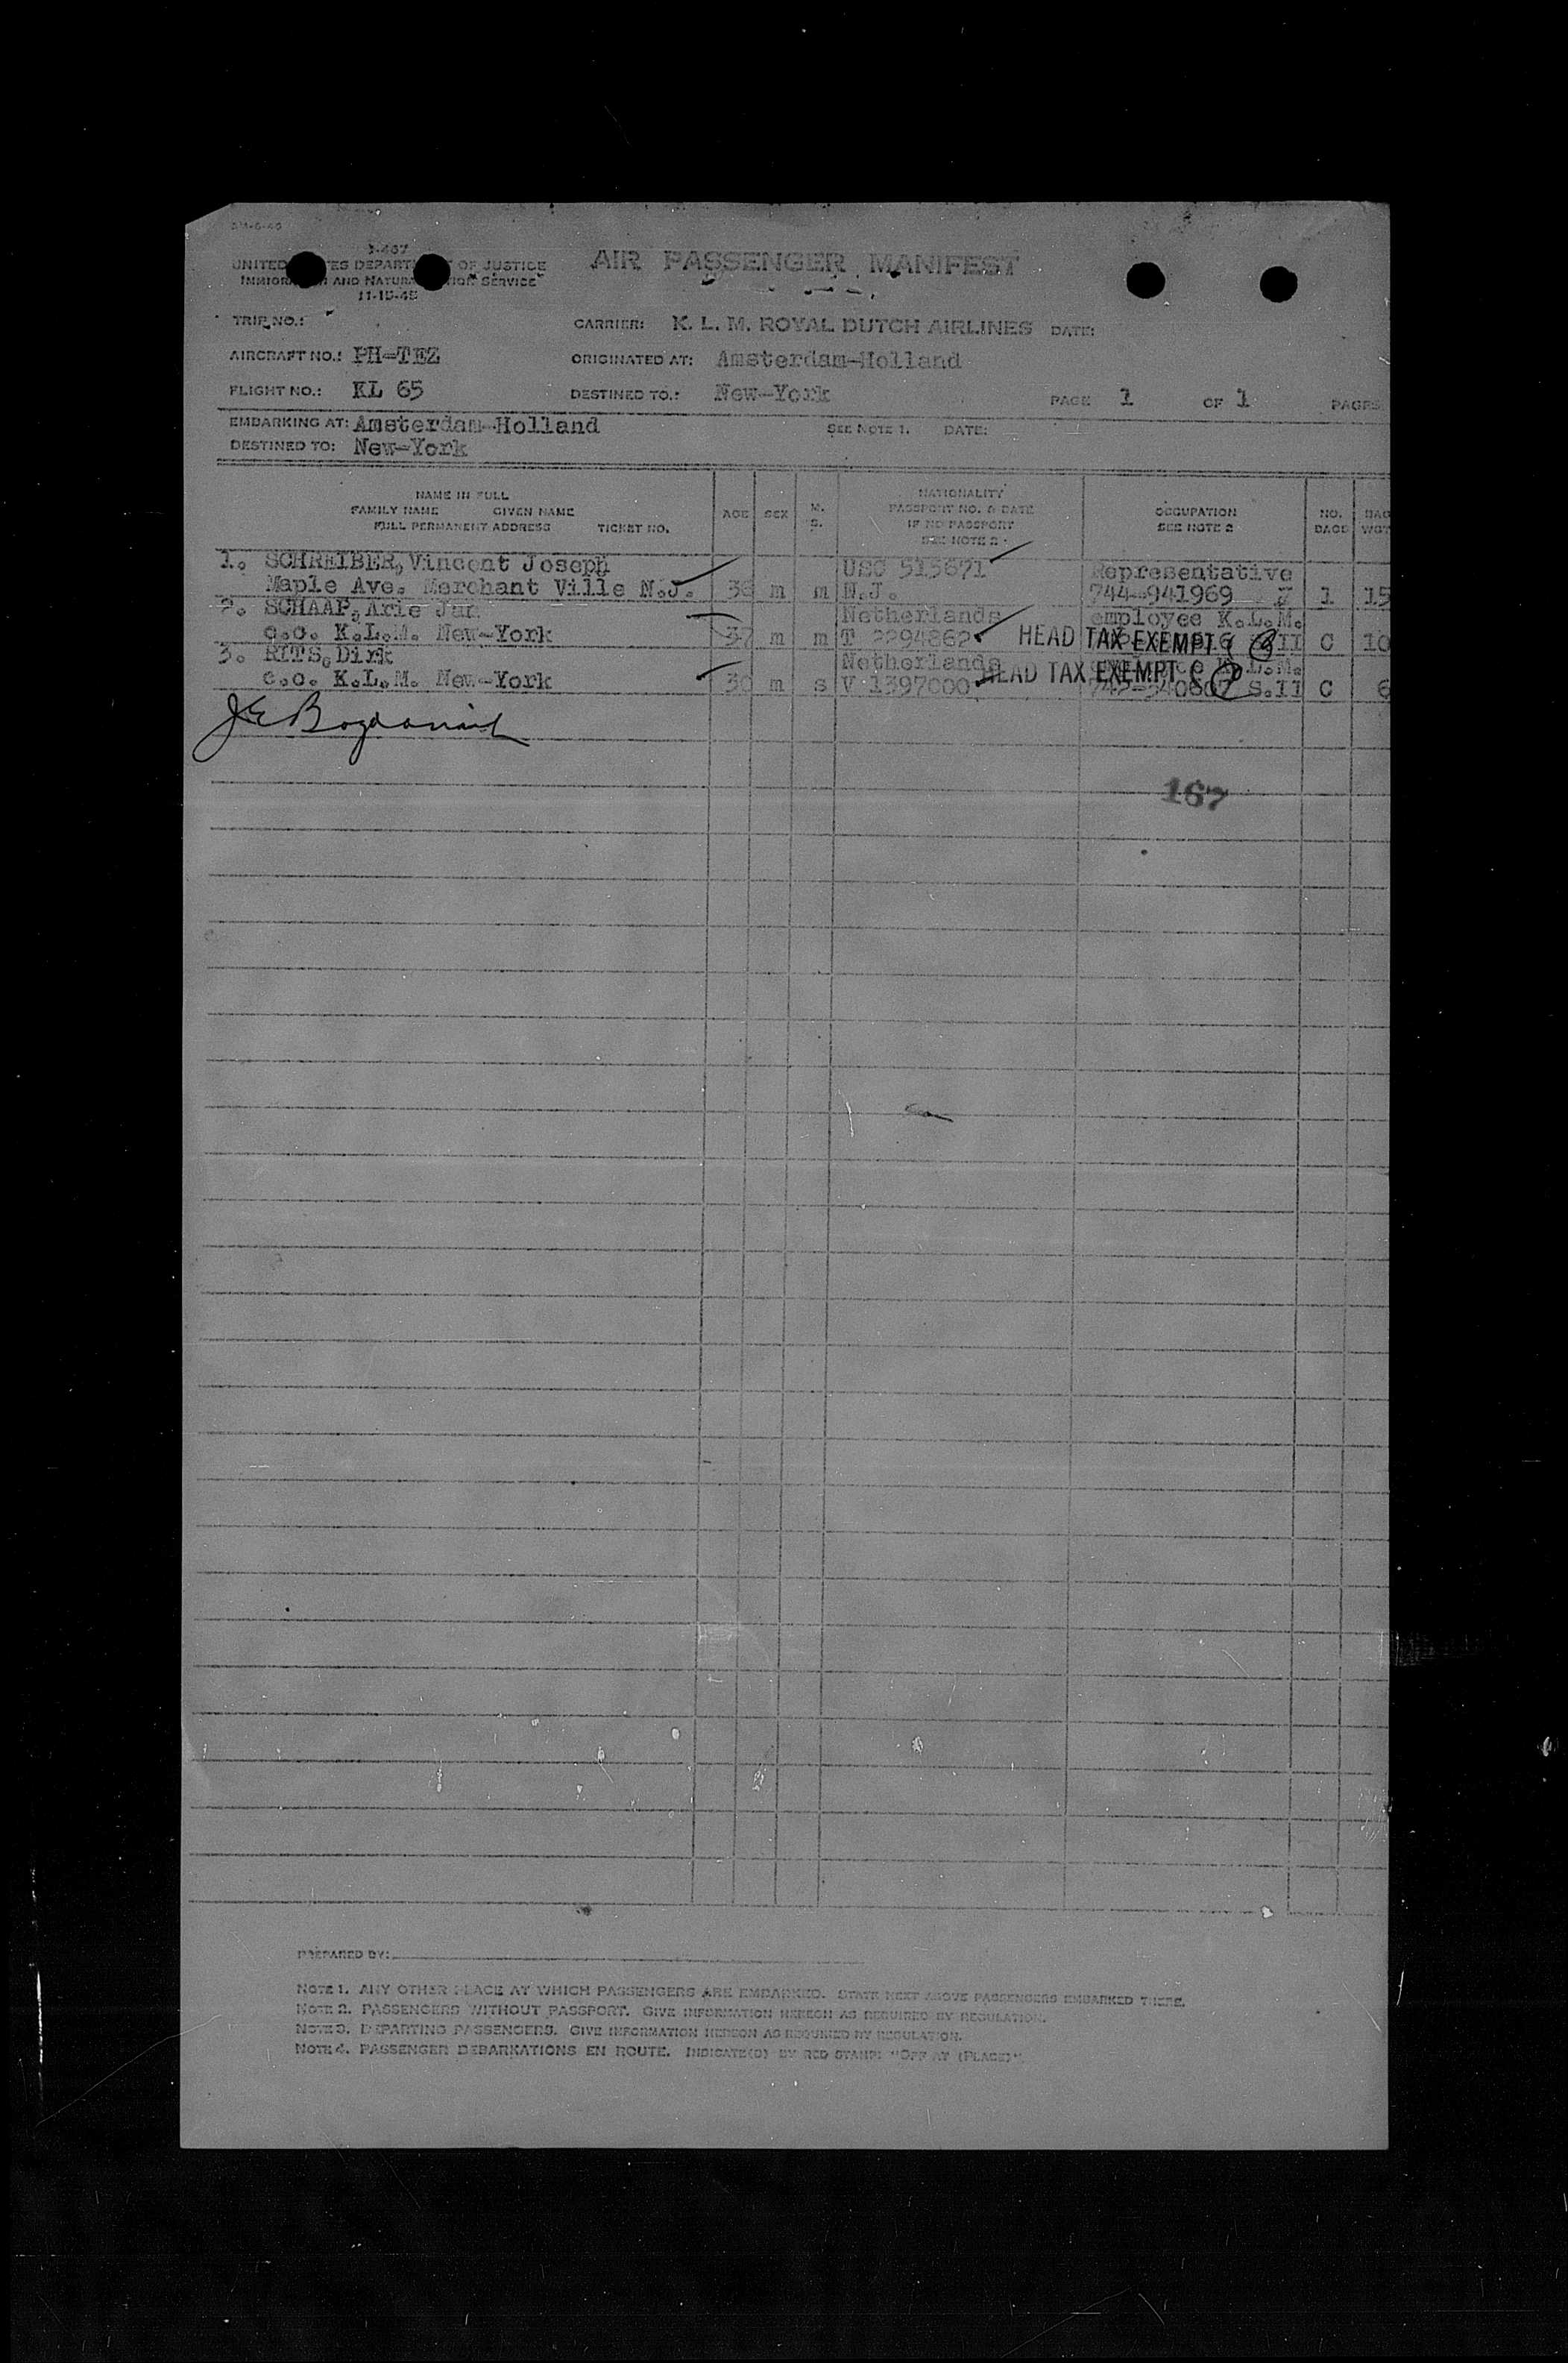 I-467
UNITED STATES DEPARTMENT OF JUSTICE
IMMIGRATION AND NATURALIZATION SERVICE
11-15-45
AIR PASSENGER MANIFEST
TRIP NO.:
CARRIER: K. L. M. ROYAL DUTCH AIRLINES DATE:
AIRCRAFT NO.: PH-TEZ
ORIGINATED AT: Amsterdam-Holland
FLIGHT NO.: KL 65
DESTINED TO.: New-York
PAGE 1 OF 1 PAGES
EMBARKING AT: Amsterdam-Holland SEE NOTE 1. DATE:
DESTINED TO: New-York
NAME IN FULL
FAMILY NAME GIVEN NAME
FULL PERMANENT ADDRESS TICKET NO.
AGE
SEX
M.
S.
NATIONALITY
PASSPORT NO. & DATE
IF NO PASSPORT
SEE NOTE 2
OCCUPATION
SEE NOTE 2
NO.
BAGS
BAG
WGT
1. SCHREIBER, Vincent Joseph USC 513671 Representative
Maple Ave. Merchant Ville N.J. 36 m m N.J. 744-941969 1 15
2. SCHAAP, Arie Jan Netherlands employee K.L.M.
c.o. K.L.M. New-York 37 m m T 2294862 HEAD TAX EXEMPT II C 10
3. RITS, Dirk Netherlands K.L.M.
c.o. K.L.M. New-York 30 m s V 1397000 HEAD TAX EXEMPT S.II C 6
167
PREPARED BY:
NOTE 1. ANY OTHER PLACE AT WHICH PASSENGERS ARE EMBARKED. STATE NEXT ABOVE PASSENGERS EMBARKED THERE.
NOTE 2. PASSENGERS WITHOUT PASSPORT. GIVE INFORMATION HEREON AS REQUIRED BY REGULATION.
NOTE 3. DEPARTING PASSENGERS. GIVE INFORMATION HEREON AS REQUIRED BY REGULATION.
NOTE 4. PASSENGER DEBARKATIONS EN ROUTE. INDICATE(D) BY RED STAMP: "OFF AT (PLACE)".